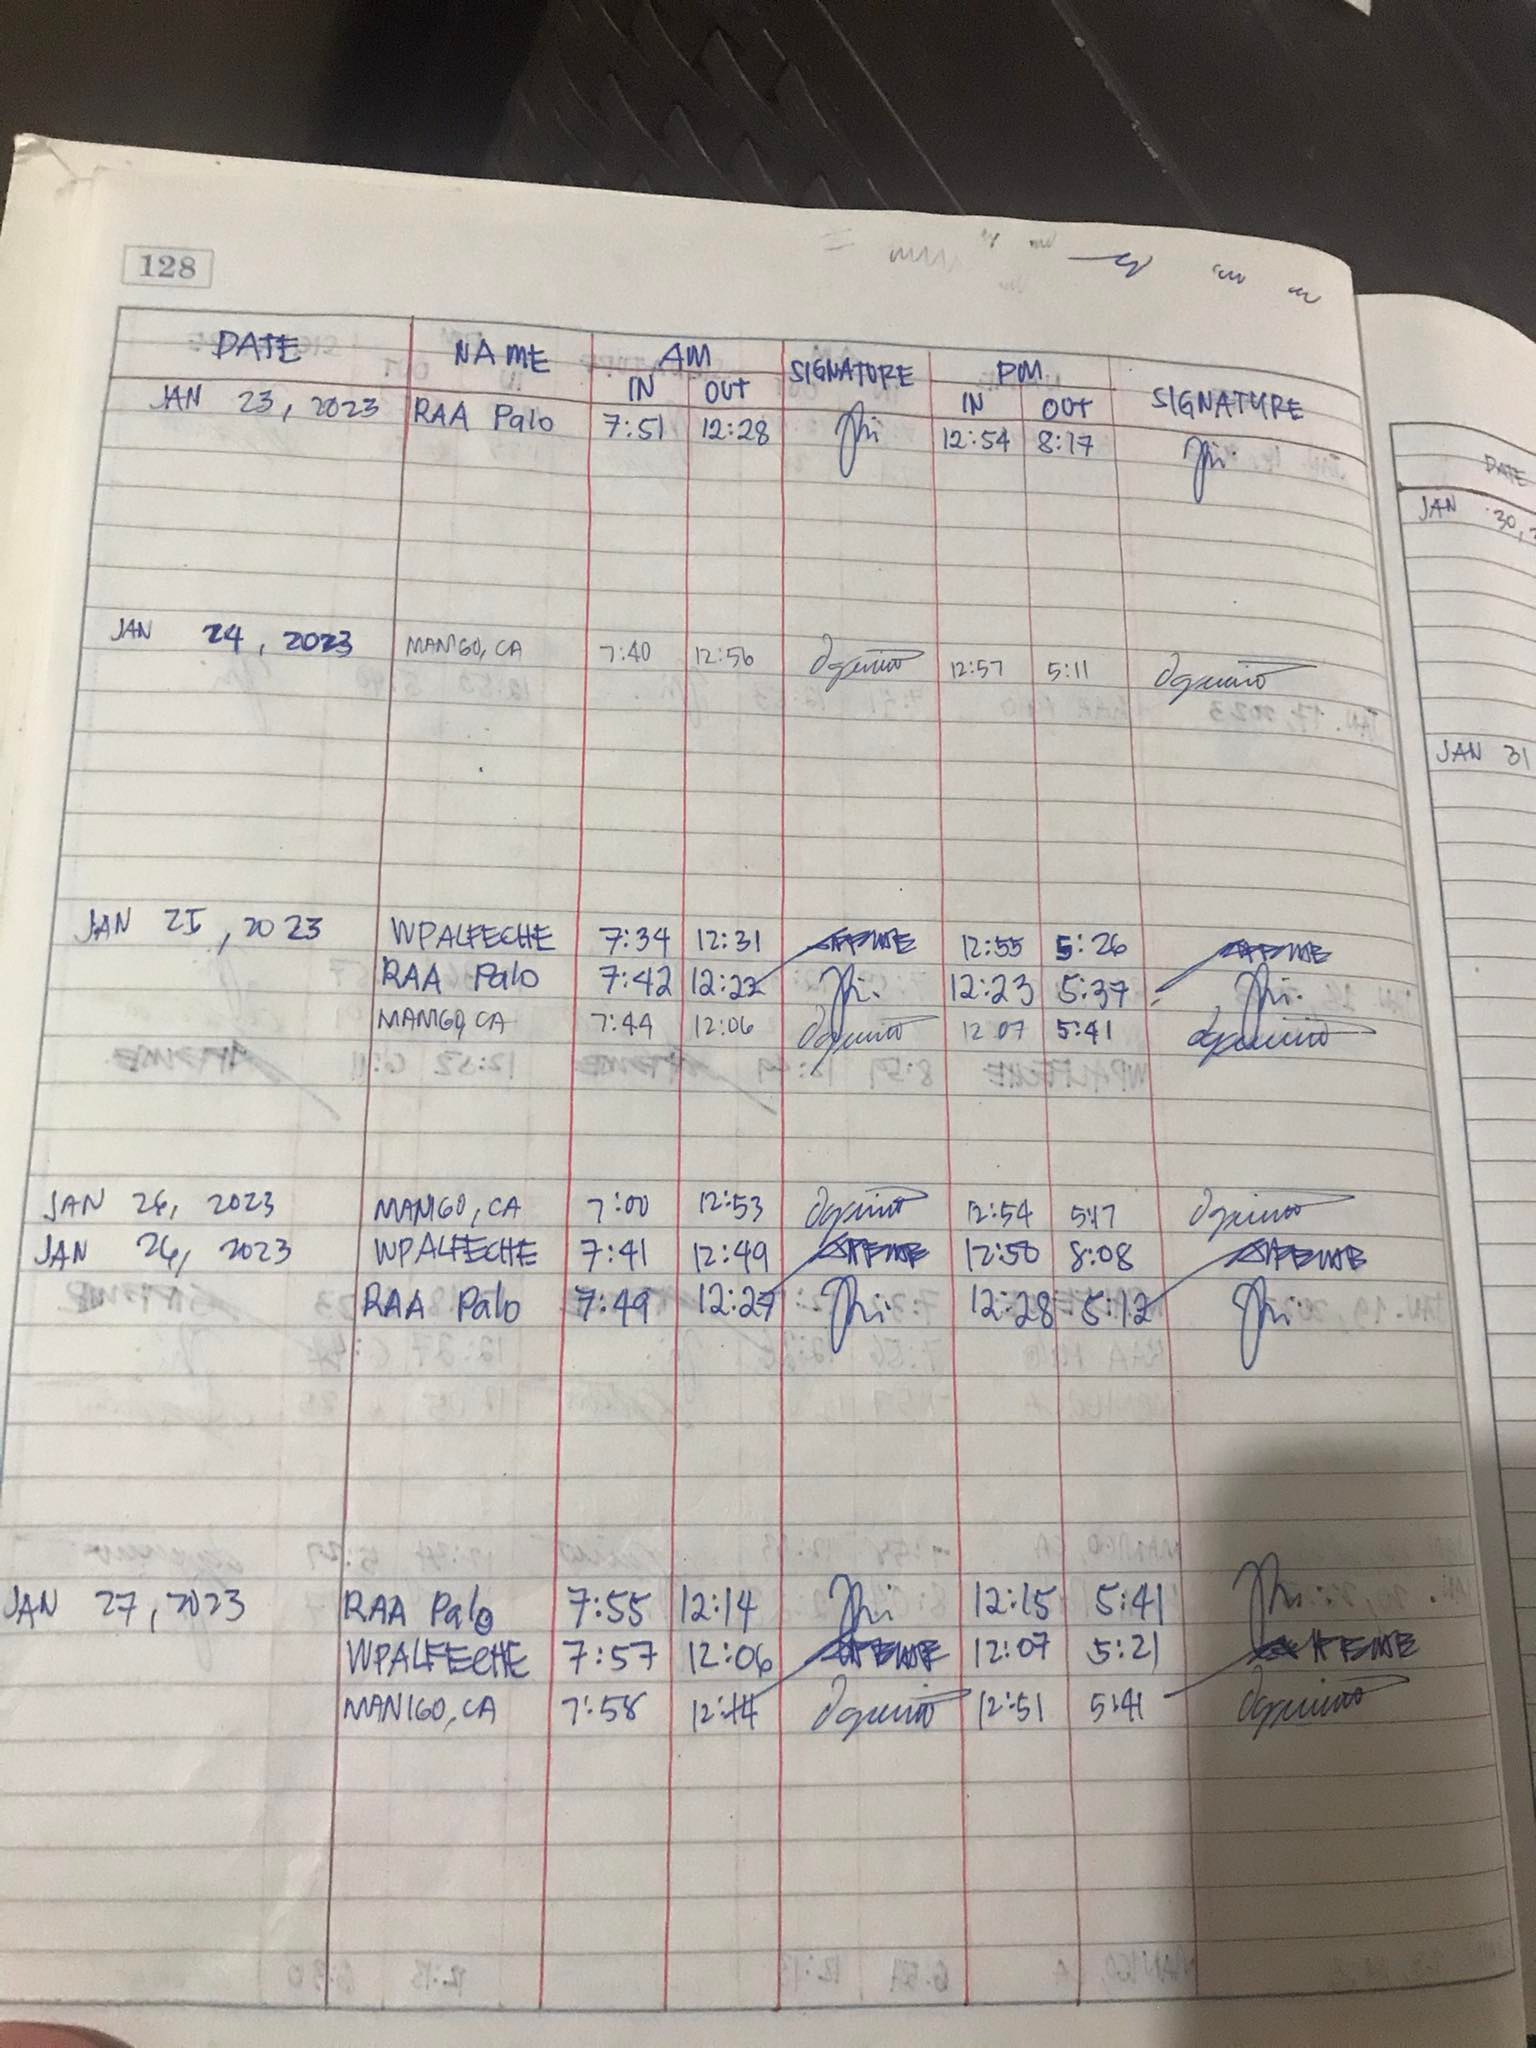 128
DATE NAME AM SIGNATURE PM SIGNATURE
IN OUT IN OUT
JAN 23, 2023 RAA Palo 7:51 12:28 12:54 8:17
JAN 24, 2023 MANIGO, CA 7:40 12:56 12:57 5:11
JAN 25, 2023 WPALFECHE 7:34 12:31 12:55 5:26
RAA Palo 7:42 12:22 12:23 5:37
MANIGO, CA 7:44 12:06 12 07 5:41
JAN 26, 2023 MANIGO, CA 7:00 12:53 12:54 5:17
JAN 26, 2023 WPALFECHE 7:41 12:49 12:50 8:08
RAA Palo 7:49 12:27 12:28 5:12
JAN 27, 2023 RAA Palo 7:55 12:14 12:15 5:41
WPALFECHE 7:57 12:06 12:07 5:21
MANIGO, CA 7:58 12:14 12:51 5:41
DATE
JAN 30,
JAN 31